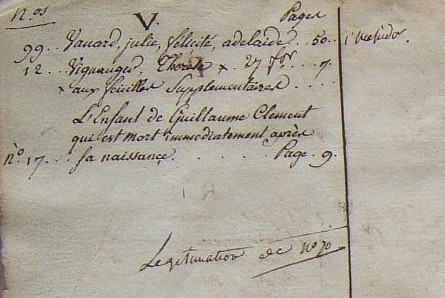 N.os V. Pages
99.. Vanard, julie, félicité, adelaide.. 50.
12.. Vignauger, Thorese x 27 fbr.. 7.
x aux feuilles Supplementaires....
L'Enfant de Guillaume Clement
qui est mort immediatement après
n.° 17.. sa naissance...... Page. 9.
Legitimation de n.° 70